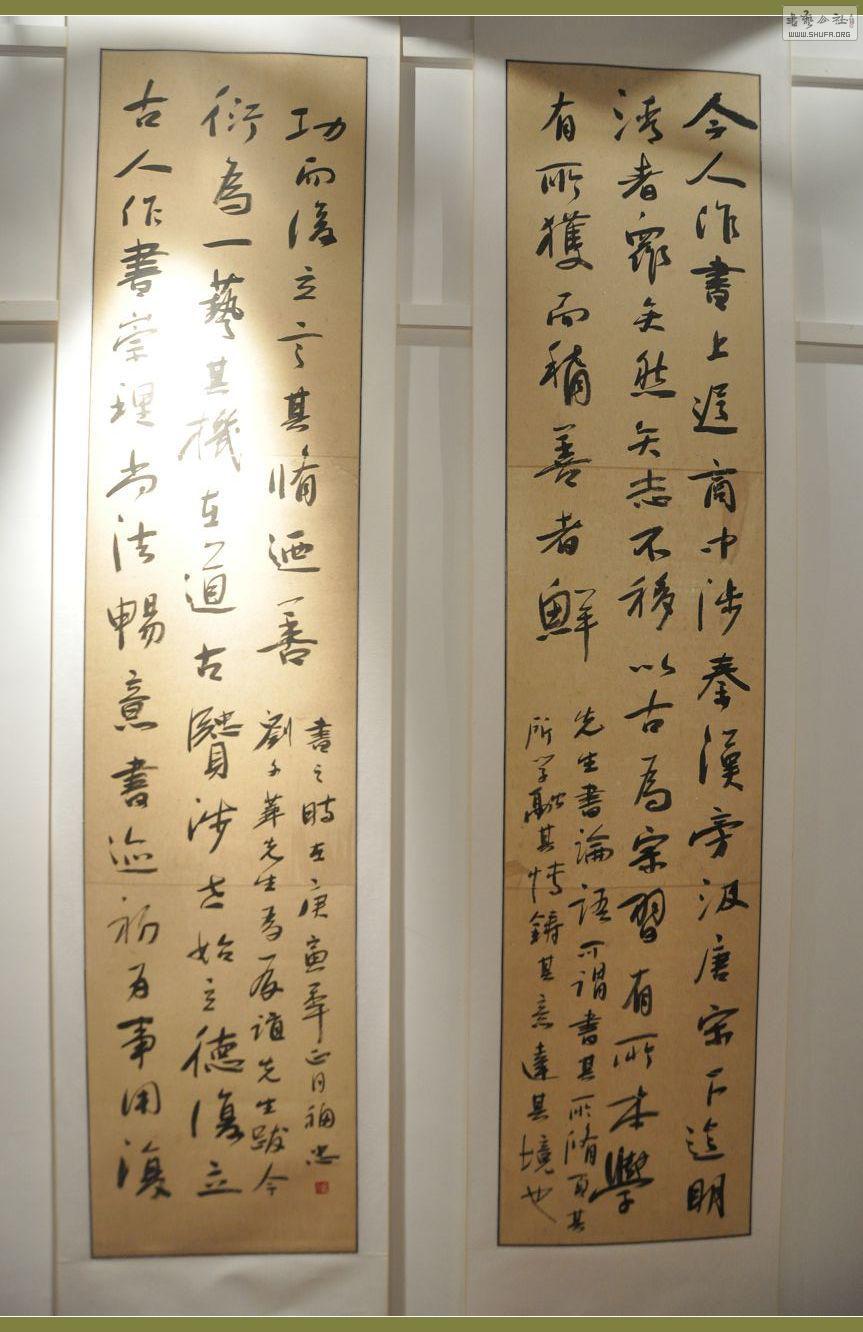 今人作書上追商中涉秦漢旁汲唐宋下迄明
清者眾矣然矢志不移以古為宗習有所本學
有所獲而稱善者鮮
先生書論語可謂書其所脩其
所學融其情鑄其意達其境也
古人作書崇理尚法暢意書迹初為事用後
衍為一藝其機在道古賢涉世始立德復立
功而後立言其脩迺善
劉子華先生為誼先生跋今
書之時在庚寅年正月福忠
書藝公社
WWW.SHUFA.ORG